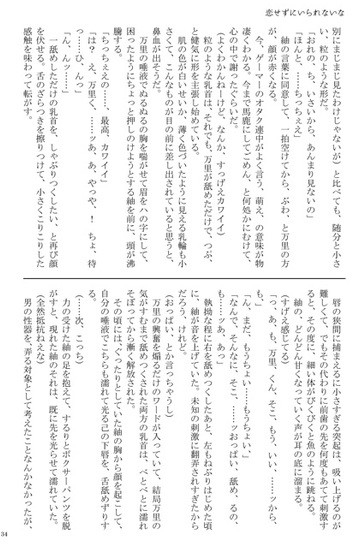 恋せずにいられないな
別にまじまじ見たわけじゃないが）と比べても、随分と小さ
い、粒のような形だ。
「おれの、ち、いさいから、あんまり見ないの」
「ほんと、……ちっちぇえ」
紬の言葉に同意して、一拍空けてから、ぶわ、と万里の方
が、顔が赤くなる。
今、ゲーマーのオタク連中がよく言う、萌え、の意味が物
凄くわかる。今まで馬鹿にしてごめん、と何処かにむけて、
心の中で謝ったくらいだ。
（よくわかんねーけど、なんか、すっげえカワイイ）
粒のような乳首は、それでも、万里が舐めただけで、つぷ、
と健気に形を主張し始めている。
肌の色が白いせいか、薄く色づいたように見える乳輪も小
さくて、こんなものが目の前に差し出されていると思うと、
鼻血が出そうだ。
万里の唾液でぬるぬるの胸を喘がせて眉をハの字にして、
困ったようにちょっと押しのけようとする紬を前に、頭が沸
騰する。
「ちっちぇえの……、最高、カワイイ」
「は？　え、万里く、……ッあ、あ、やっや、！　ちょ、待
っ……ひ、んっ」
「ん、んッ……！」
一舐めしただけの乳首を、しゃぶりつくしたい、と再び顔
を伏せる。舌のざらつきを擦りつけて、小さくこりこりした
感触を味わって転がす。
唇の狭間に捕まえるに小さすぎる突起は、吸い上げるのが
難しくて、でもその代わりに前歯の先を何度もあてて刺激す
ると、その度に、細い体がびくびくと魚のように跳ねる。
紬の、どんどん甘くなっていく声が耳の底に溜まる。
（すげえ感じてる）
「っ、あ、も、万里、くん、そこ、もう、いい、……ッから、
も、」
「ん、まだ、もうちょい……もうちょい、」
「なんで、そんなに、そこ、……ッおっぱい、舐め、るの、
も……ッあ、あっ」
執拗な程に右を舐めつくしたあと、左もねぶりはじめた頃
に、紬が音を上げていた。未知の刺激に翻弄されすぎたから
だろう、けれど。
（おっぱい、とか言っちゃうし）
万里の興奮を煽るだけのワードが入っていて、結局万里の
気がすむまで舐めつくされた両方の乳首は、べとべとに濡れ
そぼってから漸く解放された。
その頃には、くったりとしていた紬の胸から顔を起こして、
自分の唾液でこちらも濡れて光る己の下唇を、舌舐めずりす
る。
（……次、こっち）
力の受けた紬の足を抱えて、するりとボクサーパンツを脱
がすと、現れた紬のそれは、既に先を光らせて濡れていた。
（全然抵抗ねえな）
男の性器を、弄る対象として考えたことなんかなかったが、
34